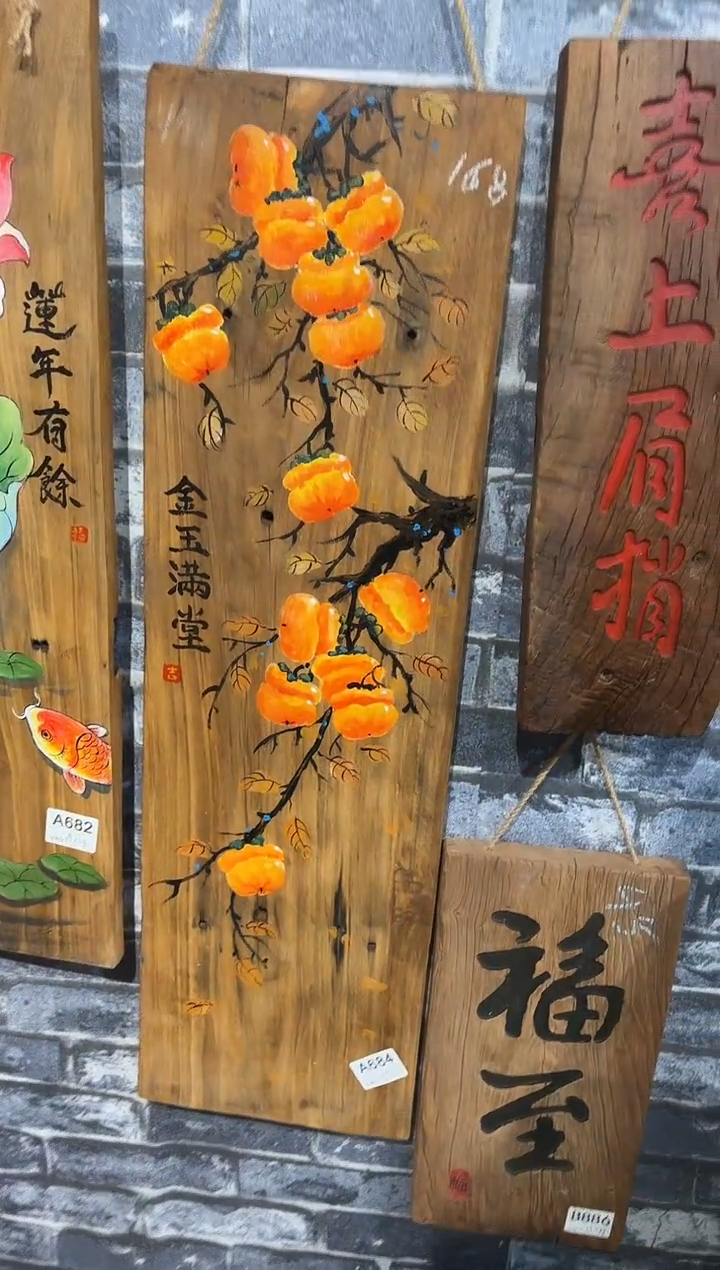 蓮年有餘
福
A682
168
金玉满堂
吉
A684
喜上肩捎
福至
B886